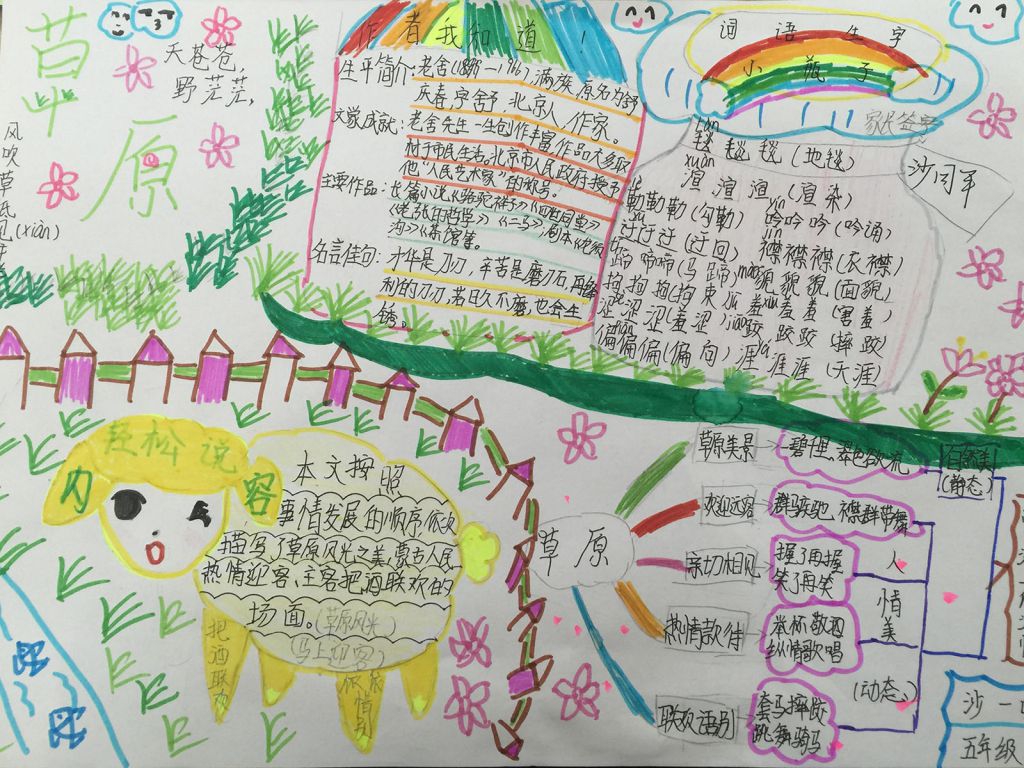 草
原
天苍苍，
野茫茫，
风
吹
草
低
见(xiàn)
作者我知道！
生平简介：老舍(1899—1966)，满族，原名为舒
庆春，字舍予，北京人，作家
文学成就：老舍先生一生创作丰富，作品大多取
材于市民生活。北京市人民政府授予
他“人民艺术家”的称号。
主要作品：长篇小说《骆驼祥子》《四世同堂》
《老张的哲学》《二马》，剧本《龙须
沟》《茶馆》等。
名言佳句：才华是刀刃，辛苦是磨刀石，再锋
利的刀刃，若日久不磨，也会生
锈。
词语生字
小瓶子
家长签字
沙同军
tǎn
毯毯毯(地毯)
xuàn
渲渲渲(渲染)
勒勒勒(勾勒)
yín
吟吟吟(吟诵)
迂迂迂(迂回)
jīn
襟襟襟(衣襟)
蹄蹄蹄(马蹄)
mào
貌貌貌(面貌)
拘拘拘(拘束)
xiū
羞羞羞(害羞)
涩涩涩(羞涩)
jiāo
跤跤跤(摔跤)
偏偏偏(偏向)
yá
涯涯涯(天涯)
轻松说
内容
本文按照
事情发展的顺序依次
描写了草原风光之美，蒙古人民
热情迎客、主客把酒联欢的
场面。(草原风光)
(马上迎客)
把酒联欢
依依惜别
草原
草原美景
碧绿、翠色欲流
自然美
(静态)
欢迎远客
群马疾驰 襟飘带舞
亲切相见
握了再握
笑了再笑
热情款待
举杯敬酒
纵情歌唱
联欢话别
套马摔跤
跳舞骑马
人
情
美
(动态)
沙一
五年级